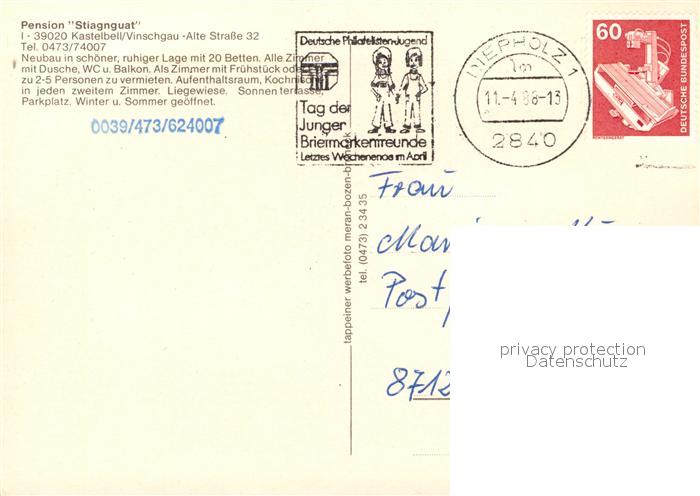 Pension "Stiagnguat"
I - 39020 Kastelbell/Vinschgau -Alte Straße 32
Tel. 0473/74007
Neubau in schöner, ruhiger Lage mit 20 Betten. Alle Zimmer
mit Dusche, WC u. Balkon. Als Zimmer mit Frühstück ode
zu 2-5 Personen zu vermieten. Aufenthaltsraum, Kochnis
in jeden zweitem Zimmer. Liegewiese. Sonnenterrasse,
Parkplatz. Winter u. Sommer geöffnet.
0039/473/624007
Deutsche Philatelisten-Jugend
Tag der
Junger
Briefmarkenfreunde
Letztes Wochenende im April
DIEPHOLZ 1
11.-4.88-13
2840
60
DEUTSCHE BUNDESPOST
RÖNTGENGERÄT
tappeiner werbefoto meran-bozen-br
tel. (0473) 2 34 35
Frau
Post
8712
privacy protection
Datenschutz